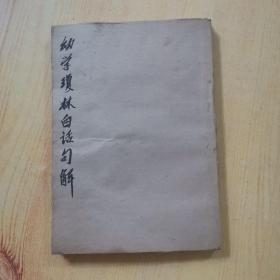 幼学瓊林白话句解